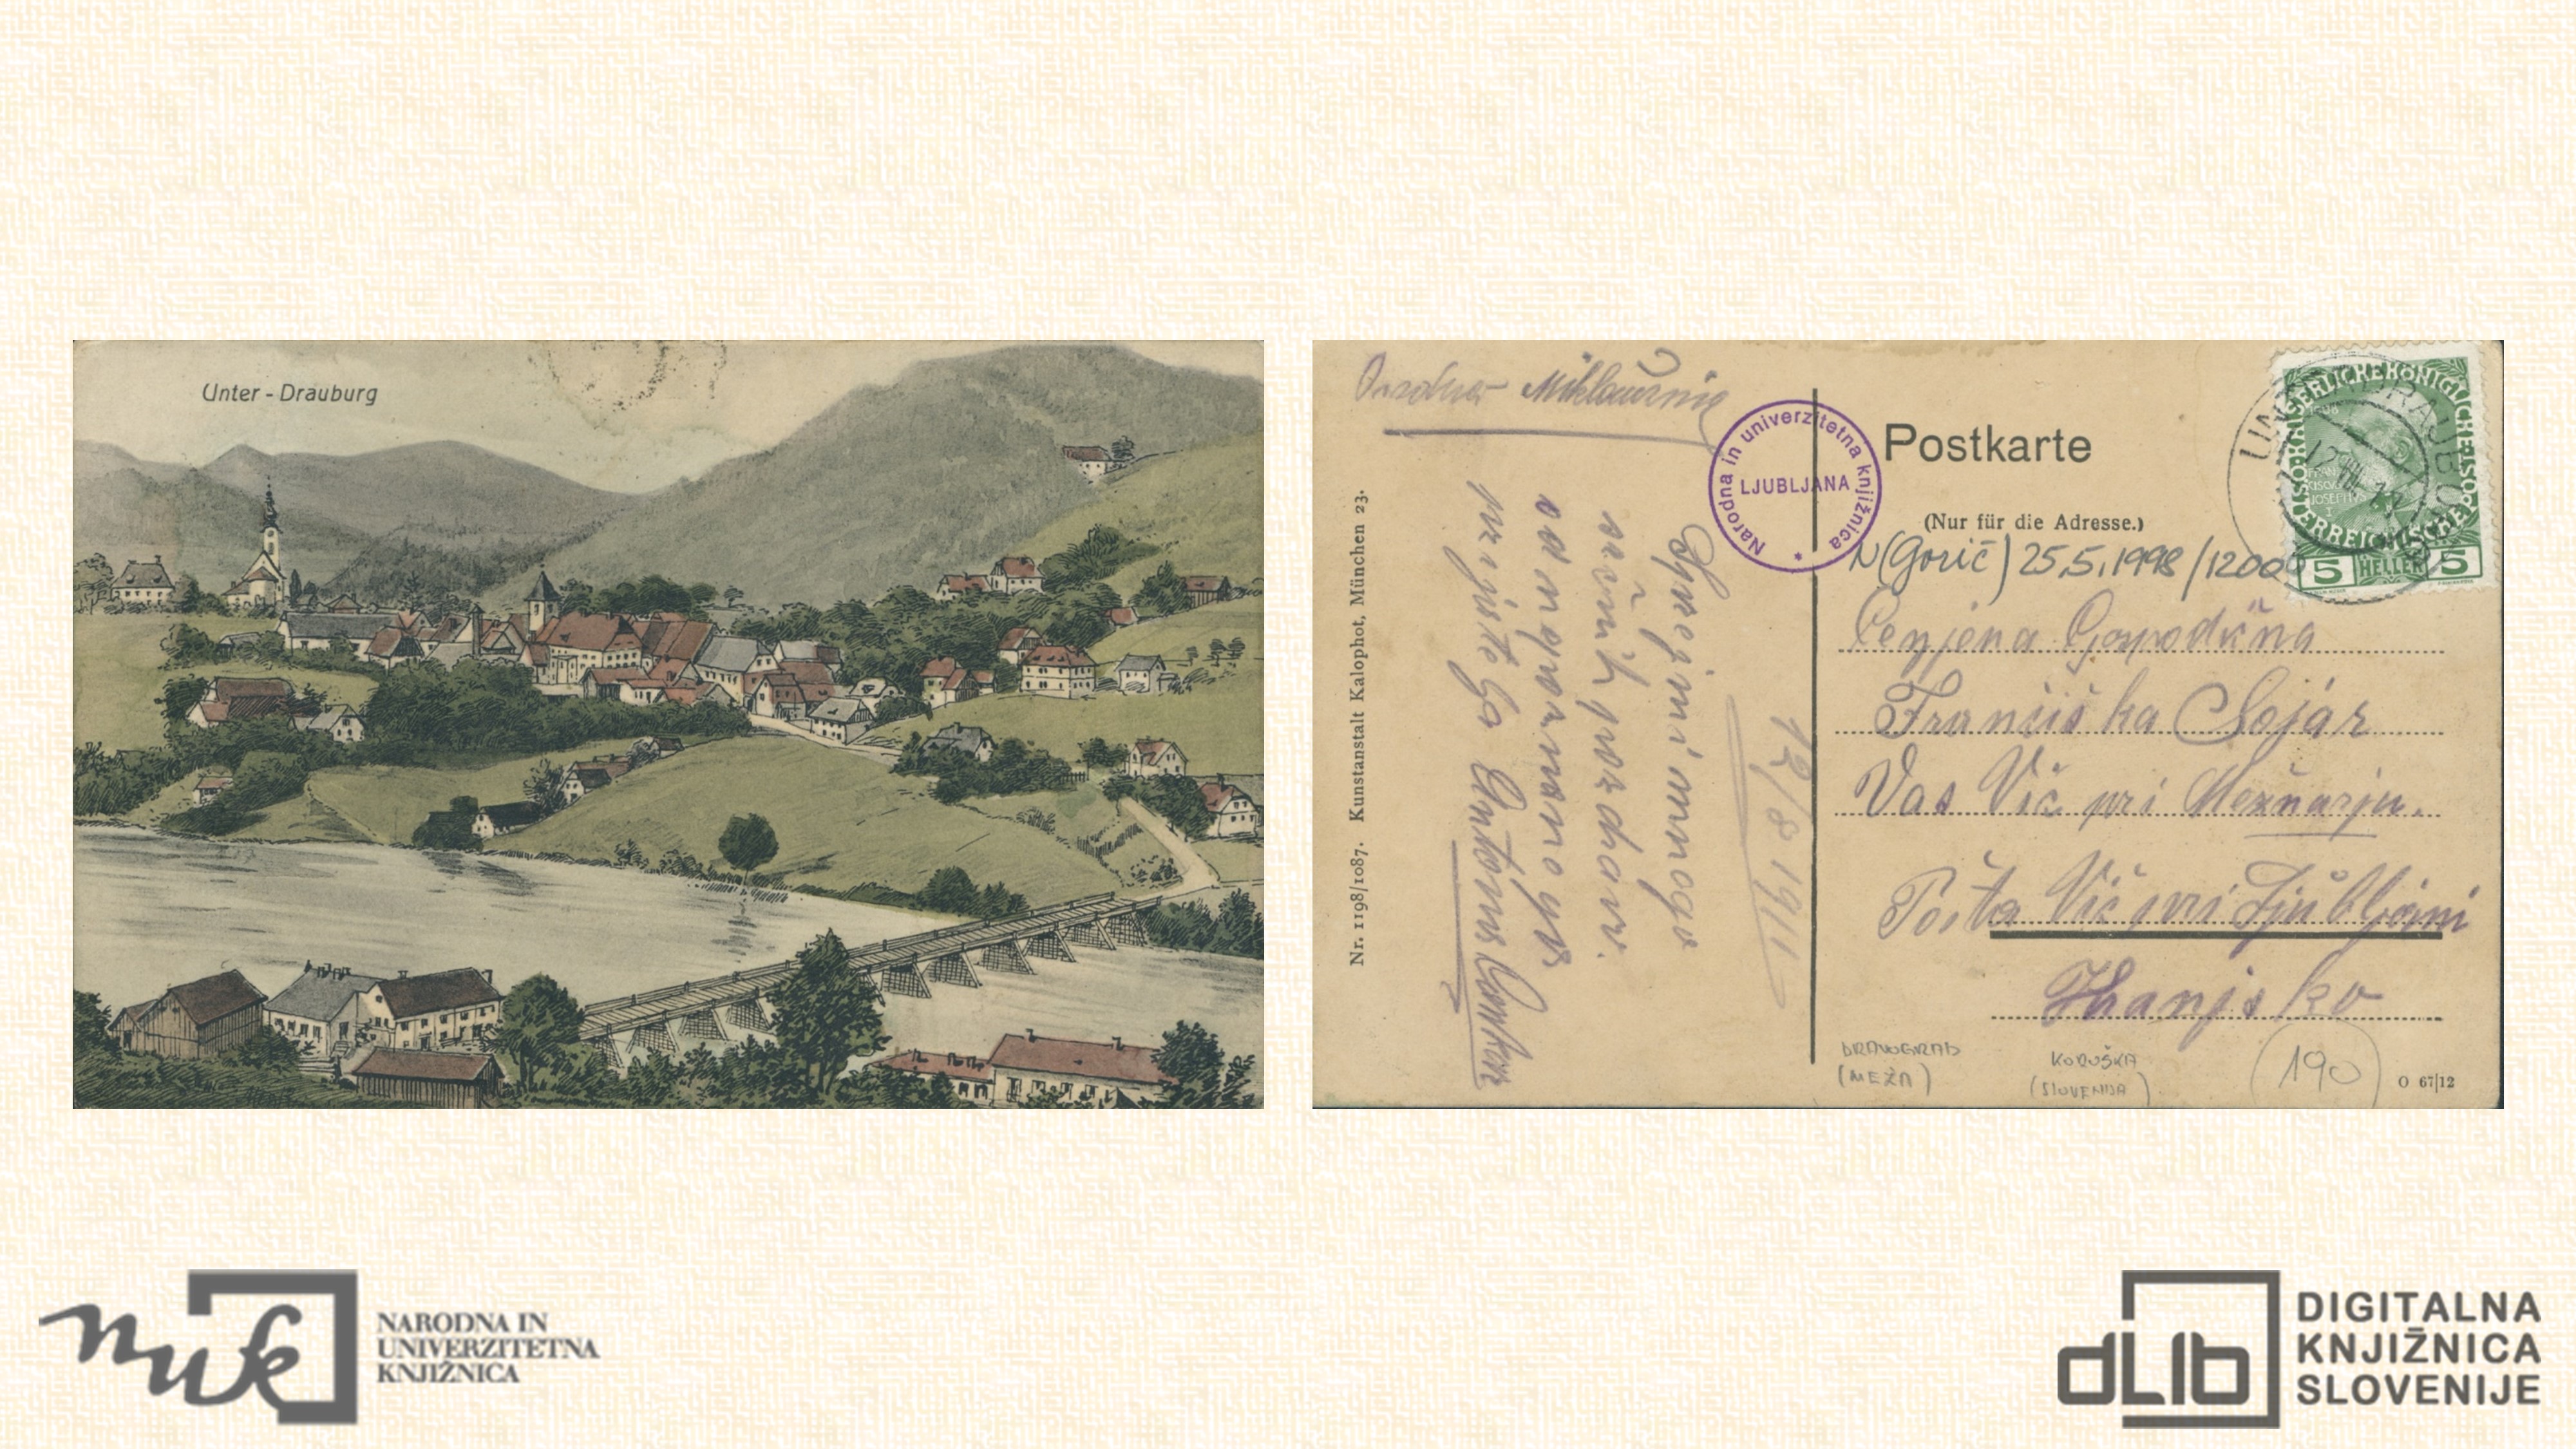 Unter-Drauburg
Miklavžnig
Sprejmi mnogo
srčnih pozdrav.
od
Antons
12/8 1911
Nr. 1198/1087. Kunstanstalt Kalophot, München 23.
Narodna in univerzitetna knjižnica
LJUBLJANA
Postkarte
(Nur für die Adresse.)
N(Gorič) 25.5.1998/1200
KAISERLICHE KÖNIGLICHE ÖSTERREICHISCHE POST
5 HELLER 5
Cenjena Gospodična
Frančiška Sojár
Vas Vič pri Mežnarju.
Pošta Vič pri Ljubljani
Kranjsko
DRAVOGRAD
(MEŽA)
KOROŠKA
(SLOVENIJA)
190
O 67/12
nuk
NARODNA IN
UNIVERZITETNA
KNJIŽNICA
dLib
DIGITALNA
KNJIŽNICA
SLOVENIJE